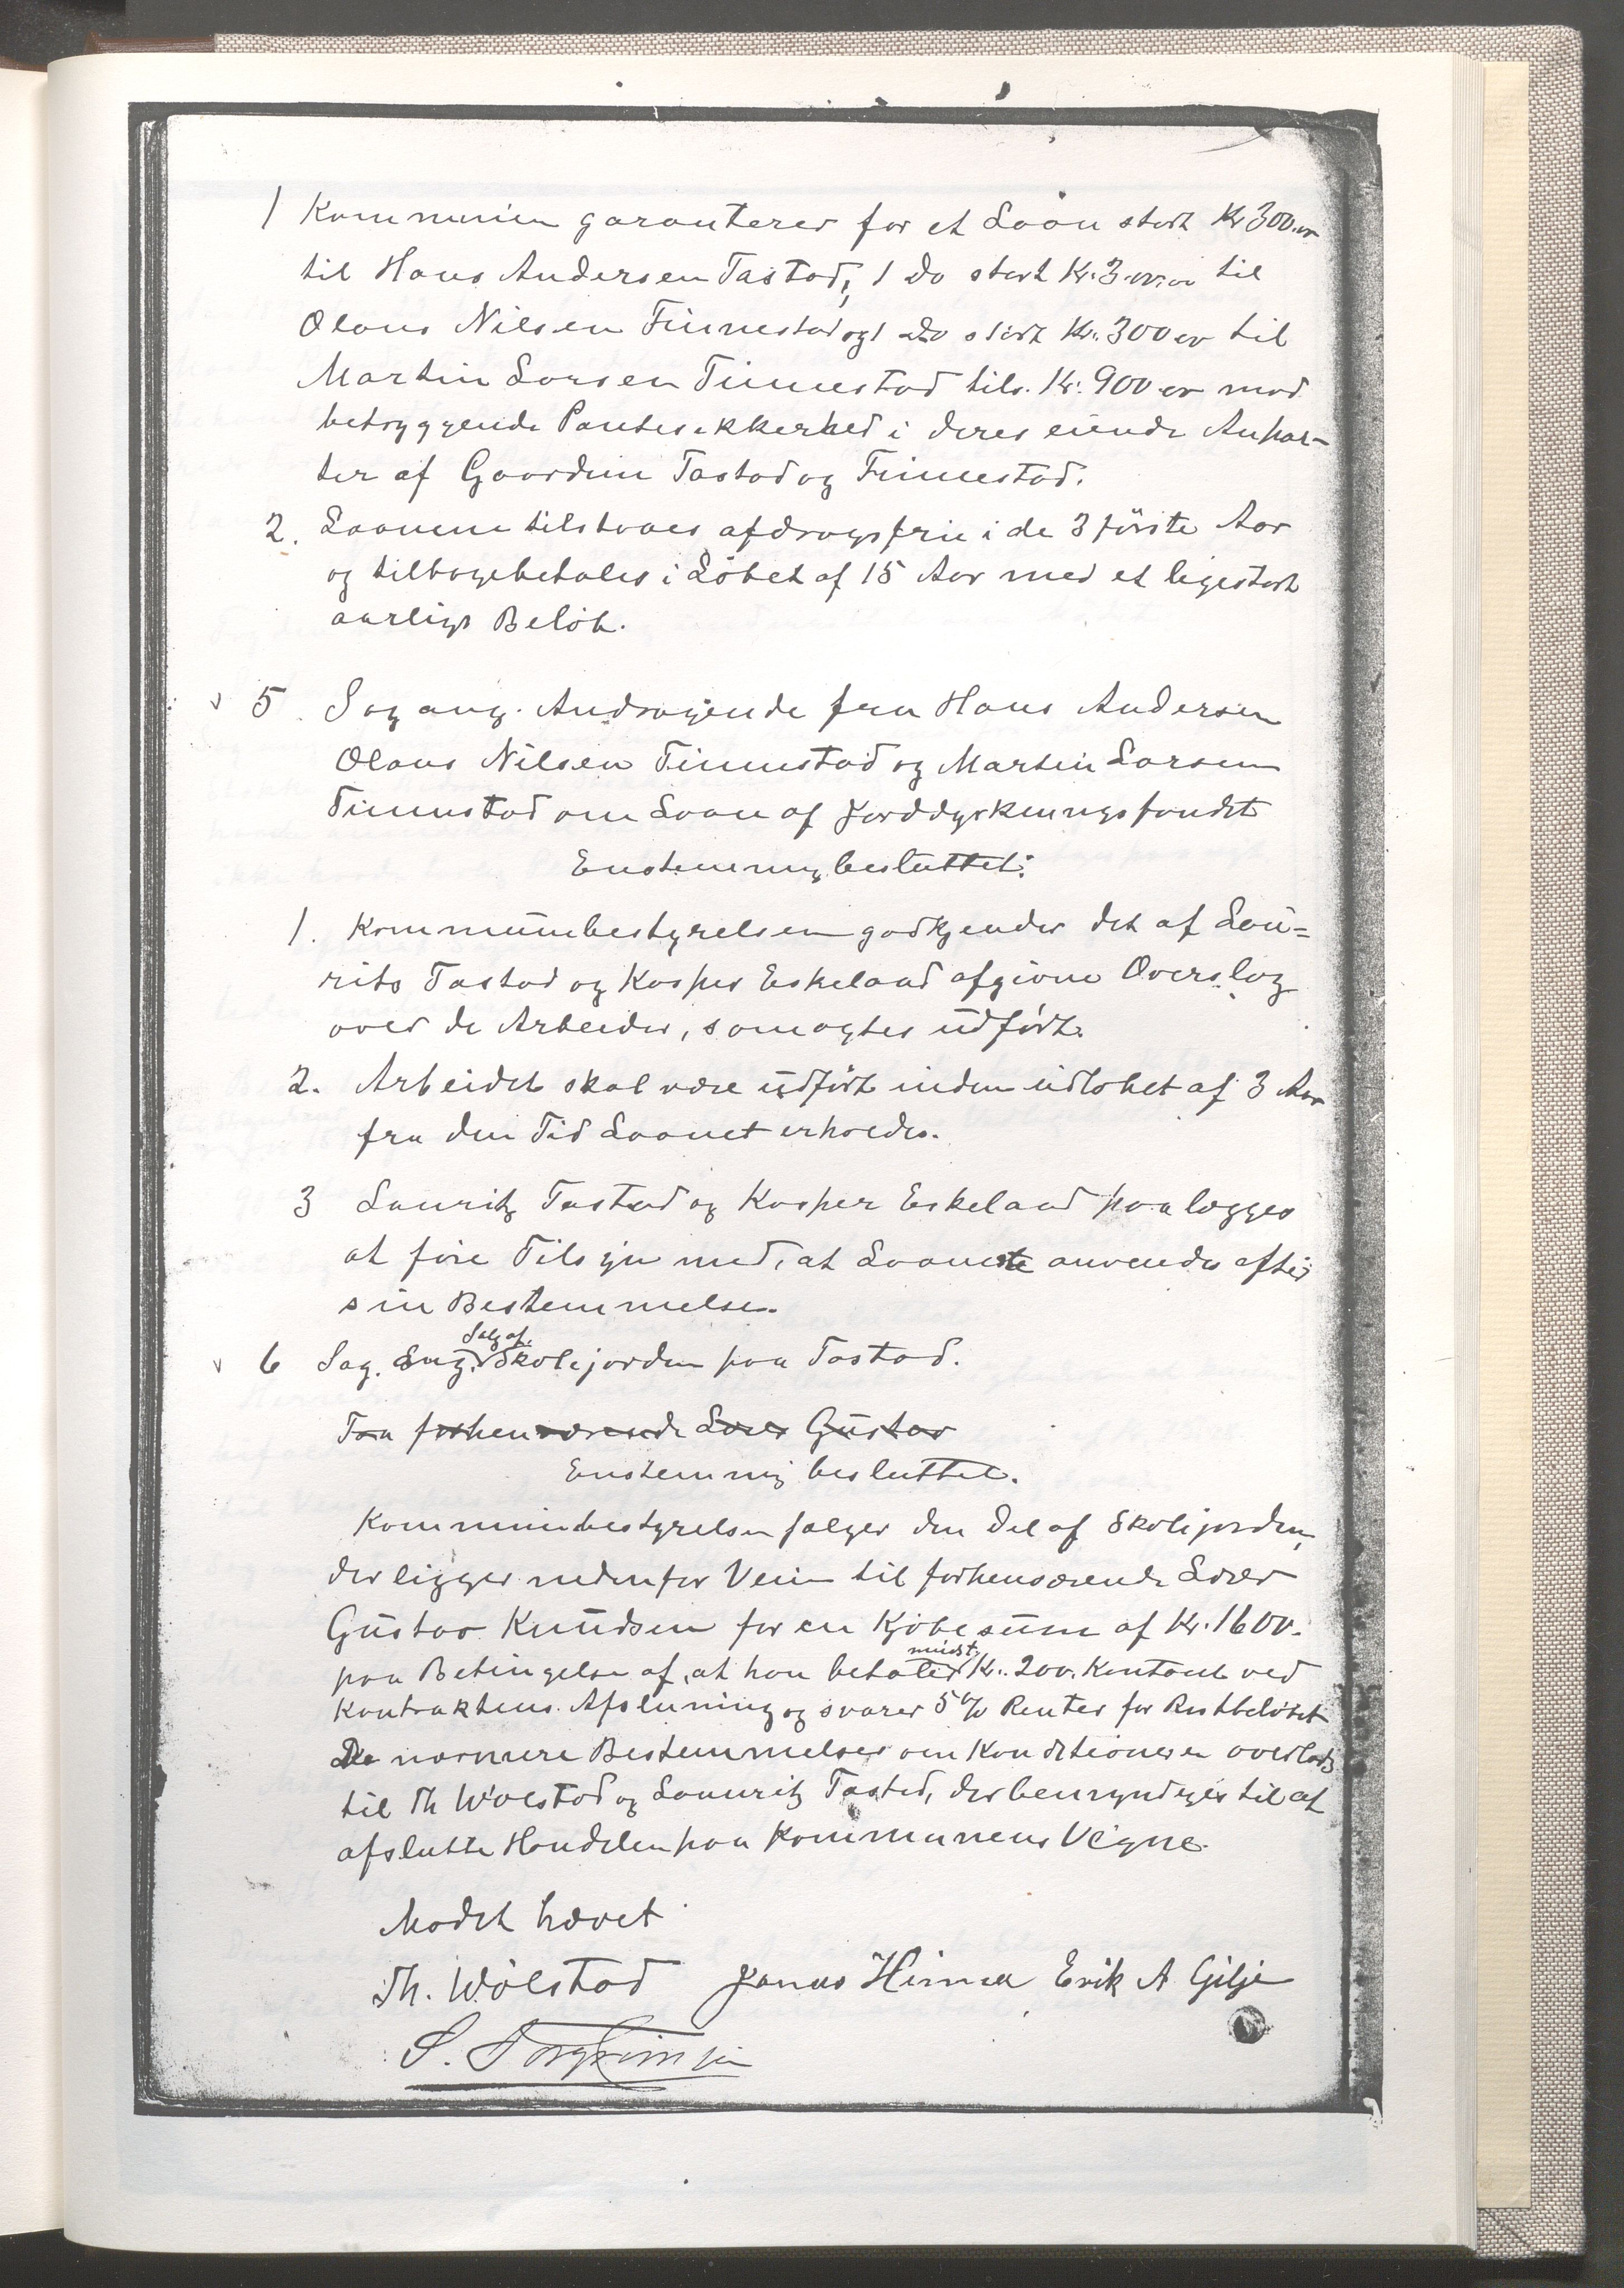 1 Kommunen garanterer for et Laan stort Kr 300.00
til Hans Andersen Tastad, 1 Do stort Kr. 3.00.00 til
Olaus Nilsen Finnestad og 1 Do stort Kr. 300 00 til
Martin Larsen Finnestad tils. Kr. 900 00 mod
betryggende Pantesikkerhed i deres eiende Anpar-
ter af Gaardene Tastad og Finnestad.
2. Laanene tilstaaes afdragsfrie i de 3 förste Aar
og tilbagebetales i Löbet af 15 Aar med et ligestort
aarligt Belöb.
5. Sag ang. Andragende fra Hans Andersen
Olaus Nilsen Finnestad og Martin Larsen
Finnestad om Laan af Jorddyrkningsfondet
Enstemmig besluttet:
1. Kommunebestyrelsen godkjender det af Lau=
rits Tastad og Kasper Eskeland afgivne Overslag
over de Arbeider, som agtes udfört.
2. Arbeidet skal være udfört inden udlöbet af 3 Aar
fra den Tid Laanet erholdes.
3 Lauritz Tastad og Kasper Eskeland paalægges
at före Tilsyn med, at Laanet anvendes efter
sin Bestemmelse.
6 Sag. Ang. Salg af Skolejorden paa Tastad.
Faa forhenværende Lærer Gustav
Enstemmig besluttet.
Kommunebestyrelsen sælger den Del af Skolejorden,
der ligger nedenfor Veien til forhenværende Lærer
Gustav Knudsen for en Kjöbesum af Kr. 1600.
paa Betingelse af, at han betaler mindst Kr. 200. Kontant ved
Kontraktens Afslutning og svarer 5 % Renter for Restbelöbet
De nærmere Bestemmelser om Konditionerne overlades
til Th Wölstad og Lauritz Tastad, der bemyndiges til at
afslutte Handelen paa Kommunens Vegne.
Mödet hævet
Th. Wölstad Jonas Hinna Erik A Gilje
S. Torgrimsen